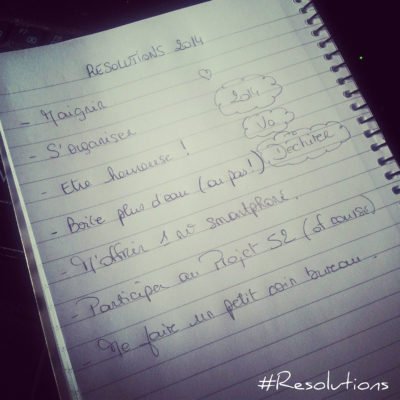 RESOLUTIONS 2014
- Maigrir
- S'organiser
- Etre heureuse !
- Boire plus d'eau (ou pas !)
- M'offrir 1 smartphone.
- Participer au Projet 52 (of course)
- Me faire un petit coin bureau.
2014
Va
Déchirer
#Resolutions